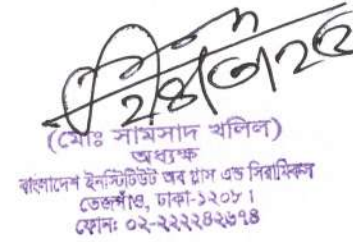 (মোঃ সামসাদ খলিল)
অধ্যক্ষ
বাংলাদেশ ইনস্টিটিউট অব গ্লাস এন্ড সিরামিকস
তেজগাঁও, ঢাকা-১২০৮।
ফোনঃ ০২-২২২২৪২৬৭৪